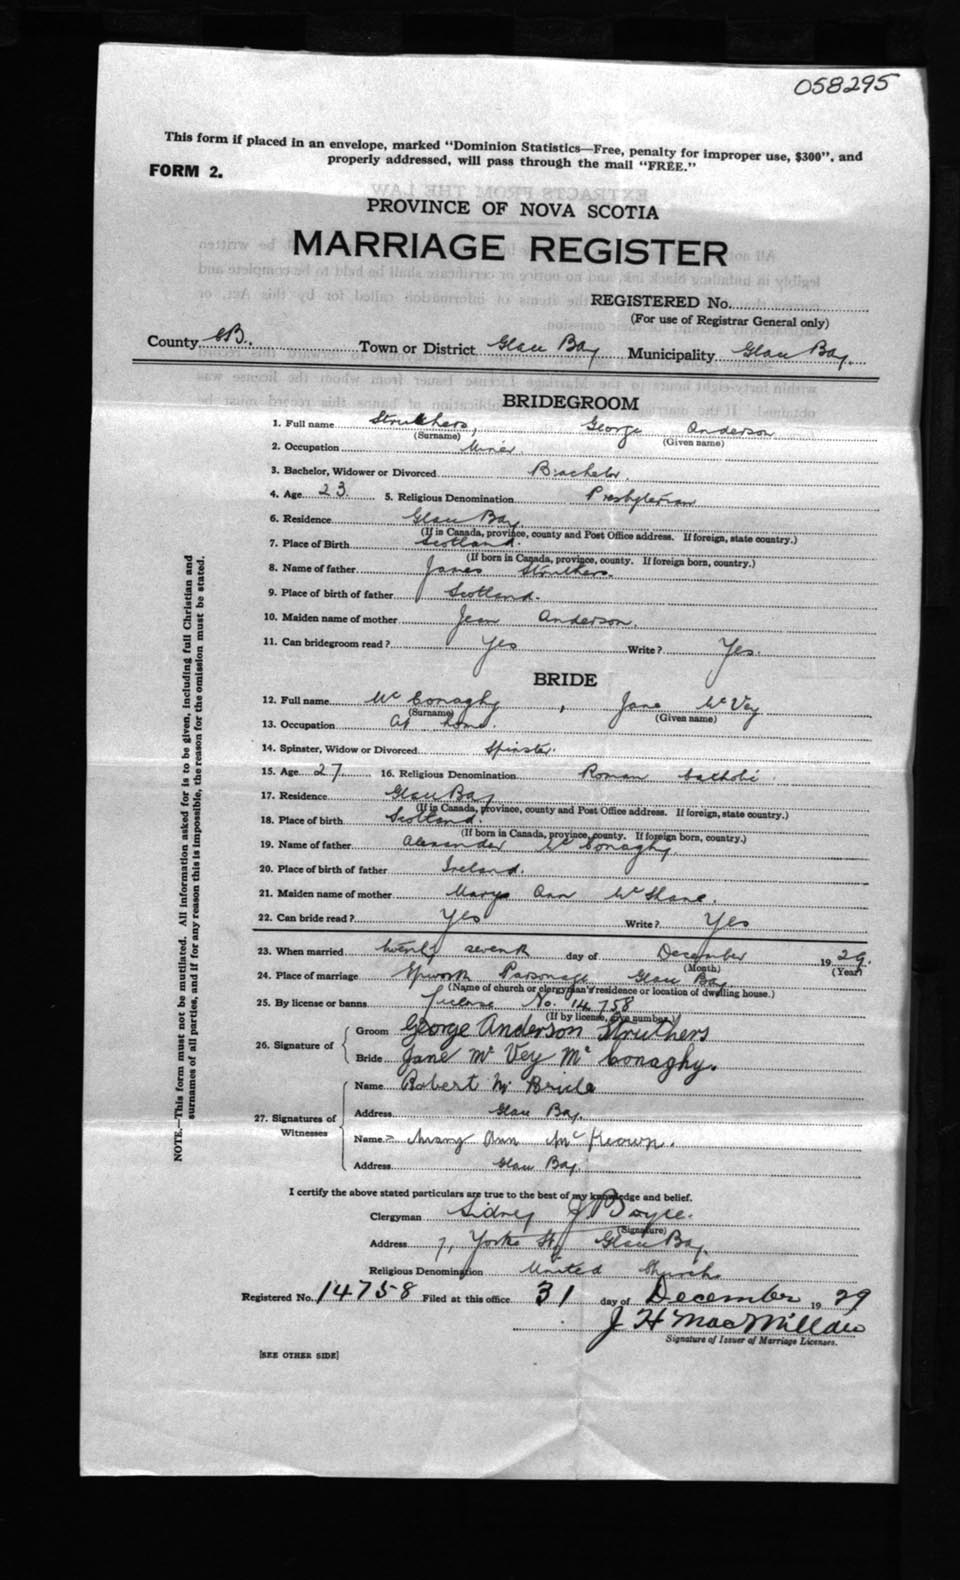 058295
This form if placed in an envelope, marked "Dominion Statistics—Free, penalty for improper use, $300", and
properly addressed, will pass through the mail "FREE."
FORM 2.
PROVINCE OF NOVA SCOTIA
MARRIAGE REGISTER
REGISTERED No.
(For use of Registrar General only)
County C.B. Town or District Glace Bay Municipality Glace Bay.
BRIDEGROOM
1. Full name Struthers, George Anderson
(Surname) (Given name)
2. Occupation Miner.
3. Bachelor, Widower or Divorced Bachelor.
4. Age 23. 5. Religious Denomination Presbyterian
6. Residence Glace Bay
(If in Canada, province, county and Post Office address. If foreign, state country.)
7. Place of Birth Scotland.
(If born in Canada, province, county. If foreign born, country.)
8. Name of father James Struthers.
9. Place of birth of father Scotland.
10. Maiden name of mother Jean Anderson.
11. Can bridegroom read? Yes Write? Yes.
BRIDE
12. Full name McConaghy, Jane McVey
(Surname) (Given name)
13. Occupation At home.
14. Spinster, Widow or Divorced Spinster.
15. Age 27. 16. Religious Denomination Roman Catholic
17. Residence Glace Bay
(If in Canada, province, county and Post Office address. If foreign, state country.)
18. Place of birth Scotland.
(If born in Canada, province, county. If foreign born, country.)
19. Name of father Alexander McConaghy
20. Place of birth of father Ireland.
21. Maiden name of mother Mary Ann McShane.
22. Can bride read? Yes Write? Yes
23. When married twenty seventh day of December 1929.
(Month) (Year)
24. Place of marriage Epworth Parsonage Glace Bay
(Name of church or clergyman's residence or location of dwelling house.)
25. By license or banns License No. 14758
(If by license, give number.)
26. Signature of Groom George Anderson Struthers
Bride Jane Mc Vey Mc Conaghy.
27. Signatures of Witnesses Name Robert McBride
Address Glace Bay
Name Mary Ann McKeown.
Address Glace Bay.
I certify the above stated particulars are true to the best of my knowledge and belief.
Clergyman Sidney J. Boyce.
(Signature)
Address 7, Yorke St, Glace Bay.
Religious Denomination United Church
Registered No. 14758 Filed at this office 31 day of December 1929
J H MacMillan
Signature of Issuer of Marriage Licenses.
[SEE OTHER SIDE]
NOTE.—This form must not be mutilated. All information asked for is to be given, including full Christian and
surnames of all parties, and if for any reason this is impossible, the reason for the omission must be stated.